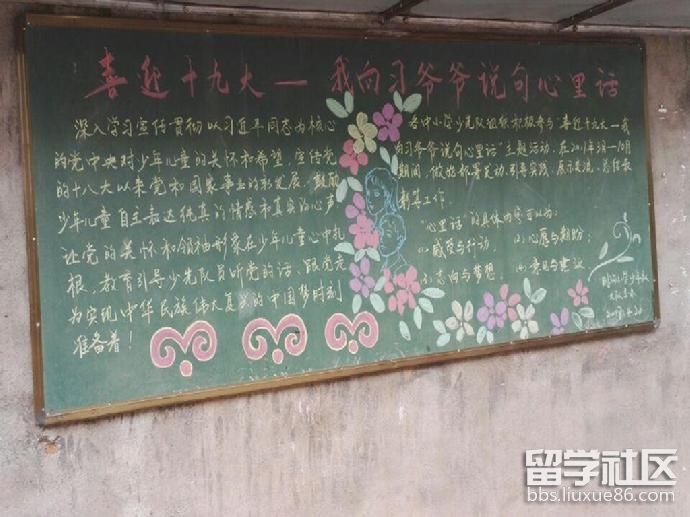 喜迎十九大—我向习爷爷说句心里话
深入学习宣传贯彻以习近平同志为核心
的党中央对少年儿童的关怀和希望，宣传党
的十八大以来党和国家事业的新发展，鼓励
少年儿童自主表达纯真的情感和真实的心声
让党的关怀和领袖形象在少年儿童心中扎
根，教育引导少先队员听党的话、跟党走
为实现中华民族伟大复兴的中国梦时刻
准备着！
各中小学少先队组织积极参与"喜迎十九大—我
向习爷爷说句心里话"主题活动，在2017年3月—10月
期间，做好机等发动，引导实践，展示交流，总结表
彰等工作。
"心里话"的具体内容可以为：
(1) 感受与行动， (2) 心愿与期盼，
(3) 志向与梦想， (4) 意见与建议
留学社区
bbs.liuxue86.com